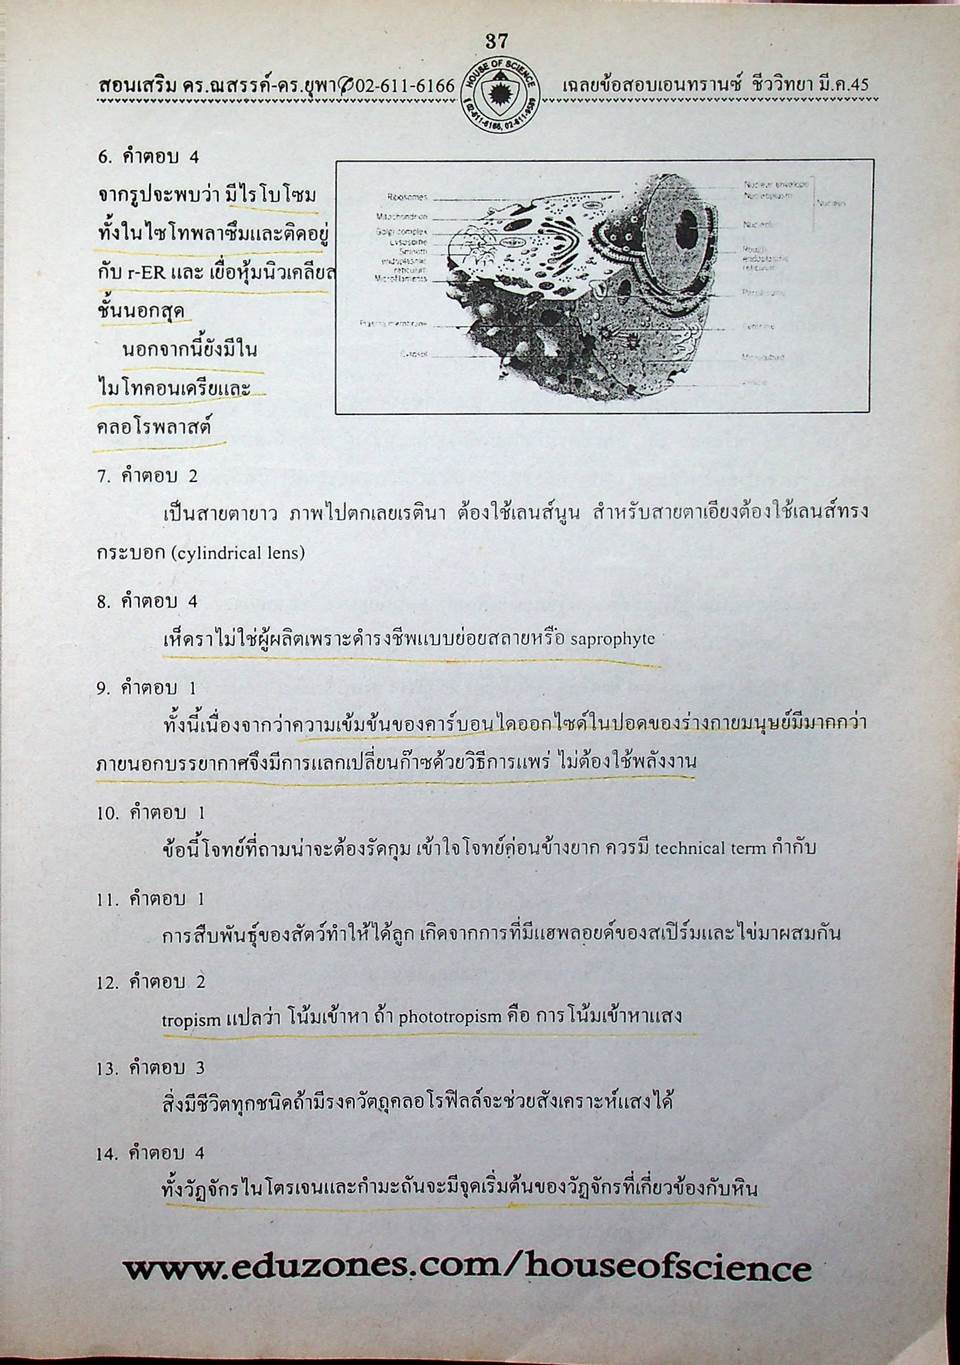 37
สอนเสริม ดร.ณสรรค์-ดร.ยุพา✆02-611-6166
HOUSE OF SCIENCE
เฉลยข้อสอบเอนทรานซ์ ชีววิทยา มี.ค.45
6. คำตอบ 4
จากรูปจะพบว่า มีไรโบโซม
ทั้งในไซโทพลาซึมและติดอยู่
กับ r-ER และ เยื่อหุ้มนิวเคลียส
ชั้นนอกสุด
นอกจากนี้ยังมีใน
ไมโทคอนเดรียและ
คลอโรพลาสต์
Ribosomes
Mitochondrion
Golgi complex
Lysosome
Smooth
endoplasmic
reticulum
Microfilaments
Plasma membrane
Cytosol
Nuclear envelope
Nucleus
Rough
endoplasmic
reticulum
Centriole
7. คำตอบ 2
เป็นสายตายาว ภาพไปตกเลยเรตินา ต้องใช้เลนส์นูน สำหรับสายตาเอียงต้องใช้เลนส์ทรง
กระบอก (cylindrical lens)
8. คำตอบ 4
เห็ดราไม่ใช่ผู้ผลิตเพราะดำรงชีพแบบย่อยสลายหรือ saprophyte
9. คำตอบ 1
ทั้งนี้เนื่องจากว่าความเข้มข้นของคาร์บอนไดออกไซด์ในปอดของร่างกายมนุษย์มีมากกว่า
ภายนอกบรรยากาศจึงมีการแลกเปลี่ยนก๊าซด้วยวิธีการแพร่ ไม่ต้องใช้พลังงาน
10. คำตอบ 1
ข้อนี้โจทย์ที่ถามน่าจะต้องรัดกุม เข้าใจโจทย์ค่อนข้างยาก ควรมี technical term กำกับ
11. คำตอบ 1
การสืบพันธุ์ของสัตว์ทำให้ได้ลูก เกิดจากการที่มีแฮพลอยด์ของสเปิร์มและไข่มาผสมกัน
12. คำตอบ 2
tropism แปลว่า โน้มเข้าหา ถ้า phototropism คือ การโน้มเข้าหาแสง
13. คำตอบ 3
สิ่งมีชีวิตทุกชนิดถ้ามีรงควัตถุคลอโรฟิลล์จะช่วยสังเคราะห์แสงได้
14. คำตอบ 4
ทั้งวัฏจักรไนโตรเจนและกำมะถันจะมีจุดเริ่มต้นของวัฏจักรที่เกี่ยวข้องกับหิน
www.eduzones.com/houseofscience